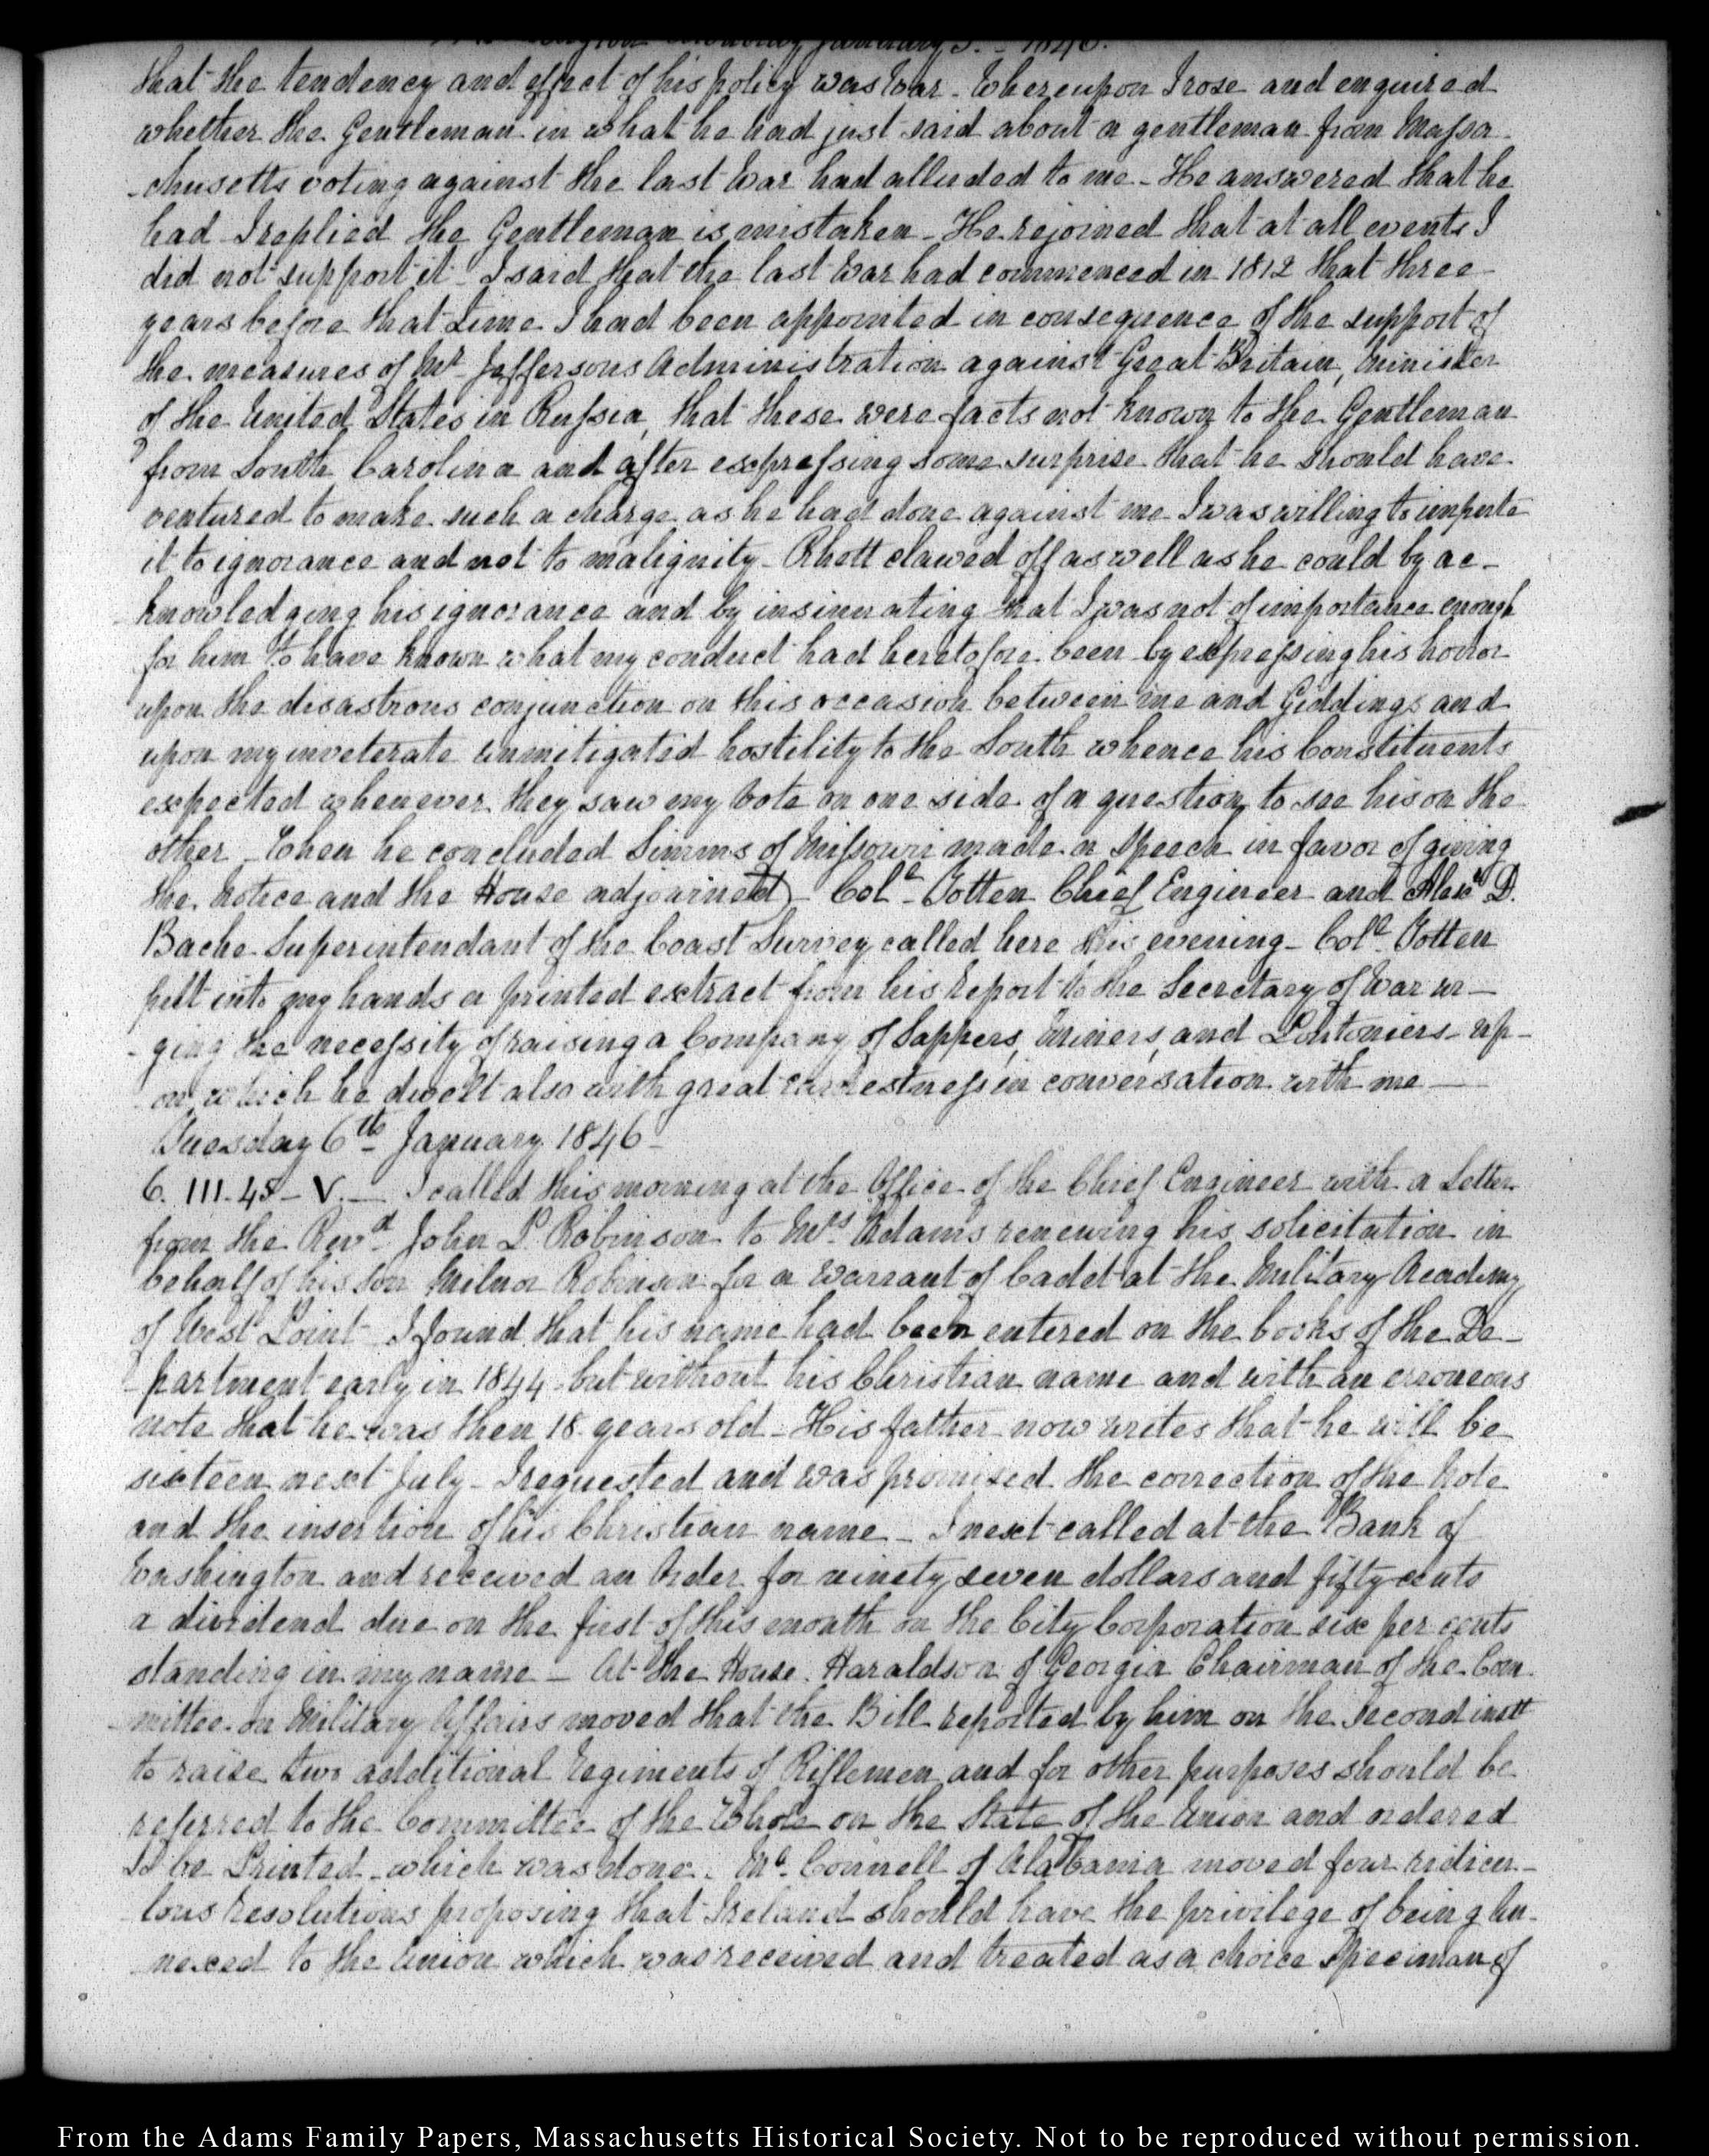 Washington Monday January 5. - 1846.
that the tendency and effect of his policy was War - Whereupon I rose and enquired
whether the Gentleman in what he had just said about a gentleman from Massa-
-chusetts voting against the last War had alluded to me - He answered that he
had I replied the Gentleman is mistaken - He rejoined that at all events I
did not support it - I said that the last War had commenced in 1812 that three
years before that time I had been appointed in consequence of the support of
the measures of Mr. Jeffersons Administration against Great-Britain, Minister
of the United States in Russia, that these were facts not known to the Gentleman
from South Carolina and after expressing some surprise that he should have
ventured to make such a charge as he had done against me I was willing to impute
it to ignorance and not to malignity - Rhett clawed off as well as he could by ac-
knowledging his ignorance and by insinuating that I was not of importance enough
for him to have known what my conduct had heretofore been by expressing his horror
upon the disastrous conjunction on this occasion between me and Giddings and
upon my inveterate unmitigated hostility to the South whence his Constituents
expected whenever they saw my Vote on one side of a question to see his on the
other - When he concluded Simms of Missouri made a Speech in favor of giving
the Notice and the House adjourned) - Coll. Totten Chief Engineer and Alexr D.
Bache Superintendant of the Coast Survey called here this evening - Coll. Totten
put into my hands a printed extract from his Report to the Secretary of War ur-
-ging the necessity of raising a Company of Sappers, Miners, and Pontoniers - up-
on which he dwelt also with great earnestness in conversation with me -
Tuesday 6th January 1846 -
6. III.45 - V. - I called this morning at the Office of the Chief Engineer with a Letter
from the Revd. John P. Robinson to Mrs Adams renewing his solicitation in
behalf of his Son Milnor Robinson for a Warrant of Cadet at the Military Academy
of West Point - I found that his name had been entered on the books of the De-
-partment early in 1844 - but without his Christian name and with an erroneous
note that he was then 18 years old - His father now writes that he will be
sixteen next July - I requested and was promised the correction of the Note
and the insertion of his Christian name - I next called at the Bank of
Washington and received an Order for ninety seven dollars and fifty cents
a dividend due on the first of this month on the City Corporation six per cents
standing in my name - At the House Haraldson of Georgia Chairman of the Com-
-mittee on Military Affairs moved that the Bill reported by him on the second instt
to raise two additional Regiments of Riflemen and for other purposes should be
referred to the Committee of the Whole on the State of the Union and ordered
to be Printed - which was done. McConnell of Alabama moved four ridicu-
-lous Resolutions proposing that Ireland should have the privilege of being An-
-nexed to the Union which was received and treated as a choice Speciman of
From the Adams Family Papers, Massachusetts Historical Society. Not to be reproduced without permission.